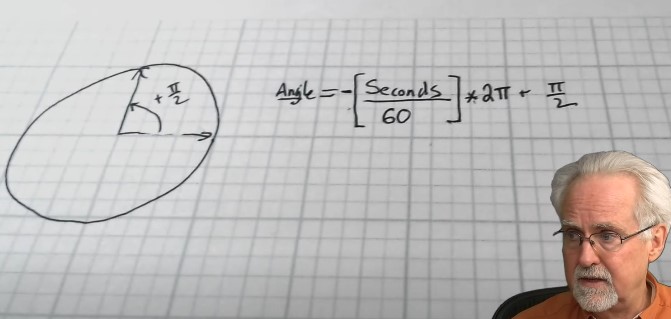 + π/2
Angle = -[Seconds/60] * 2π + π/2